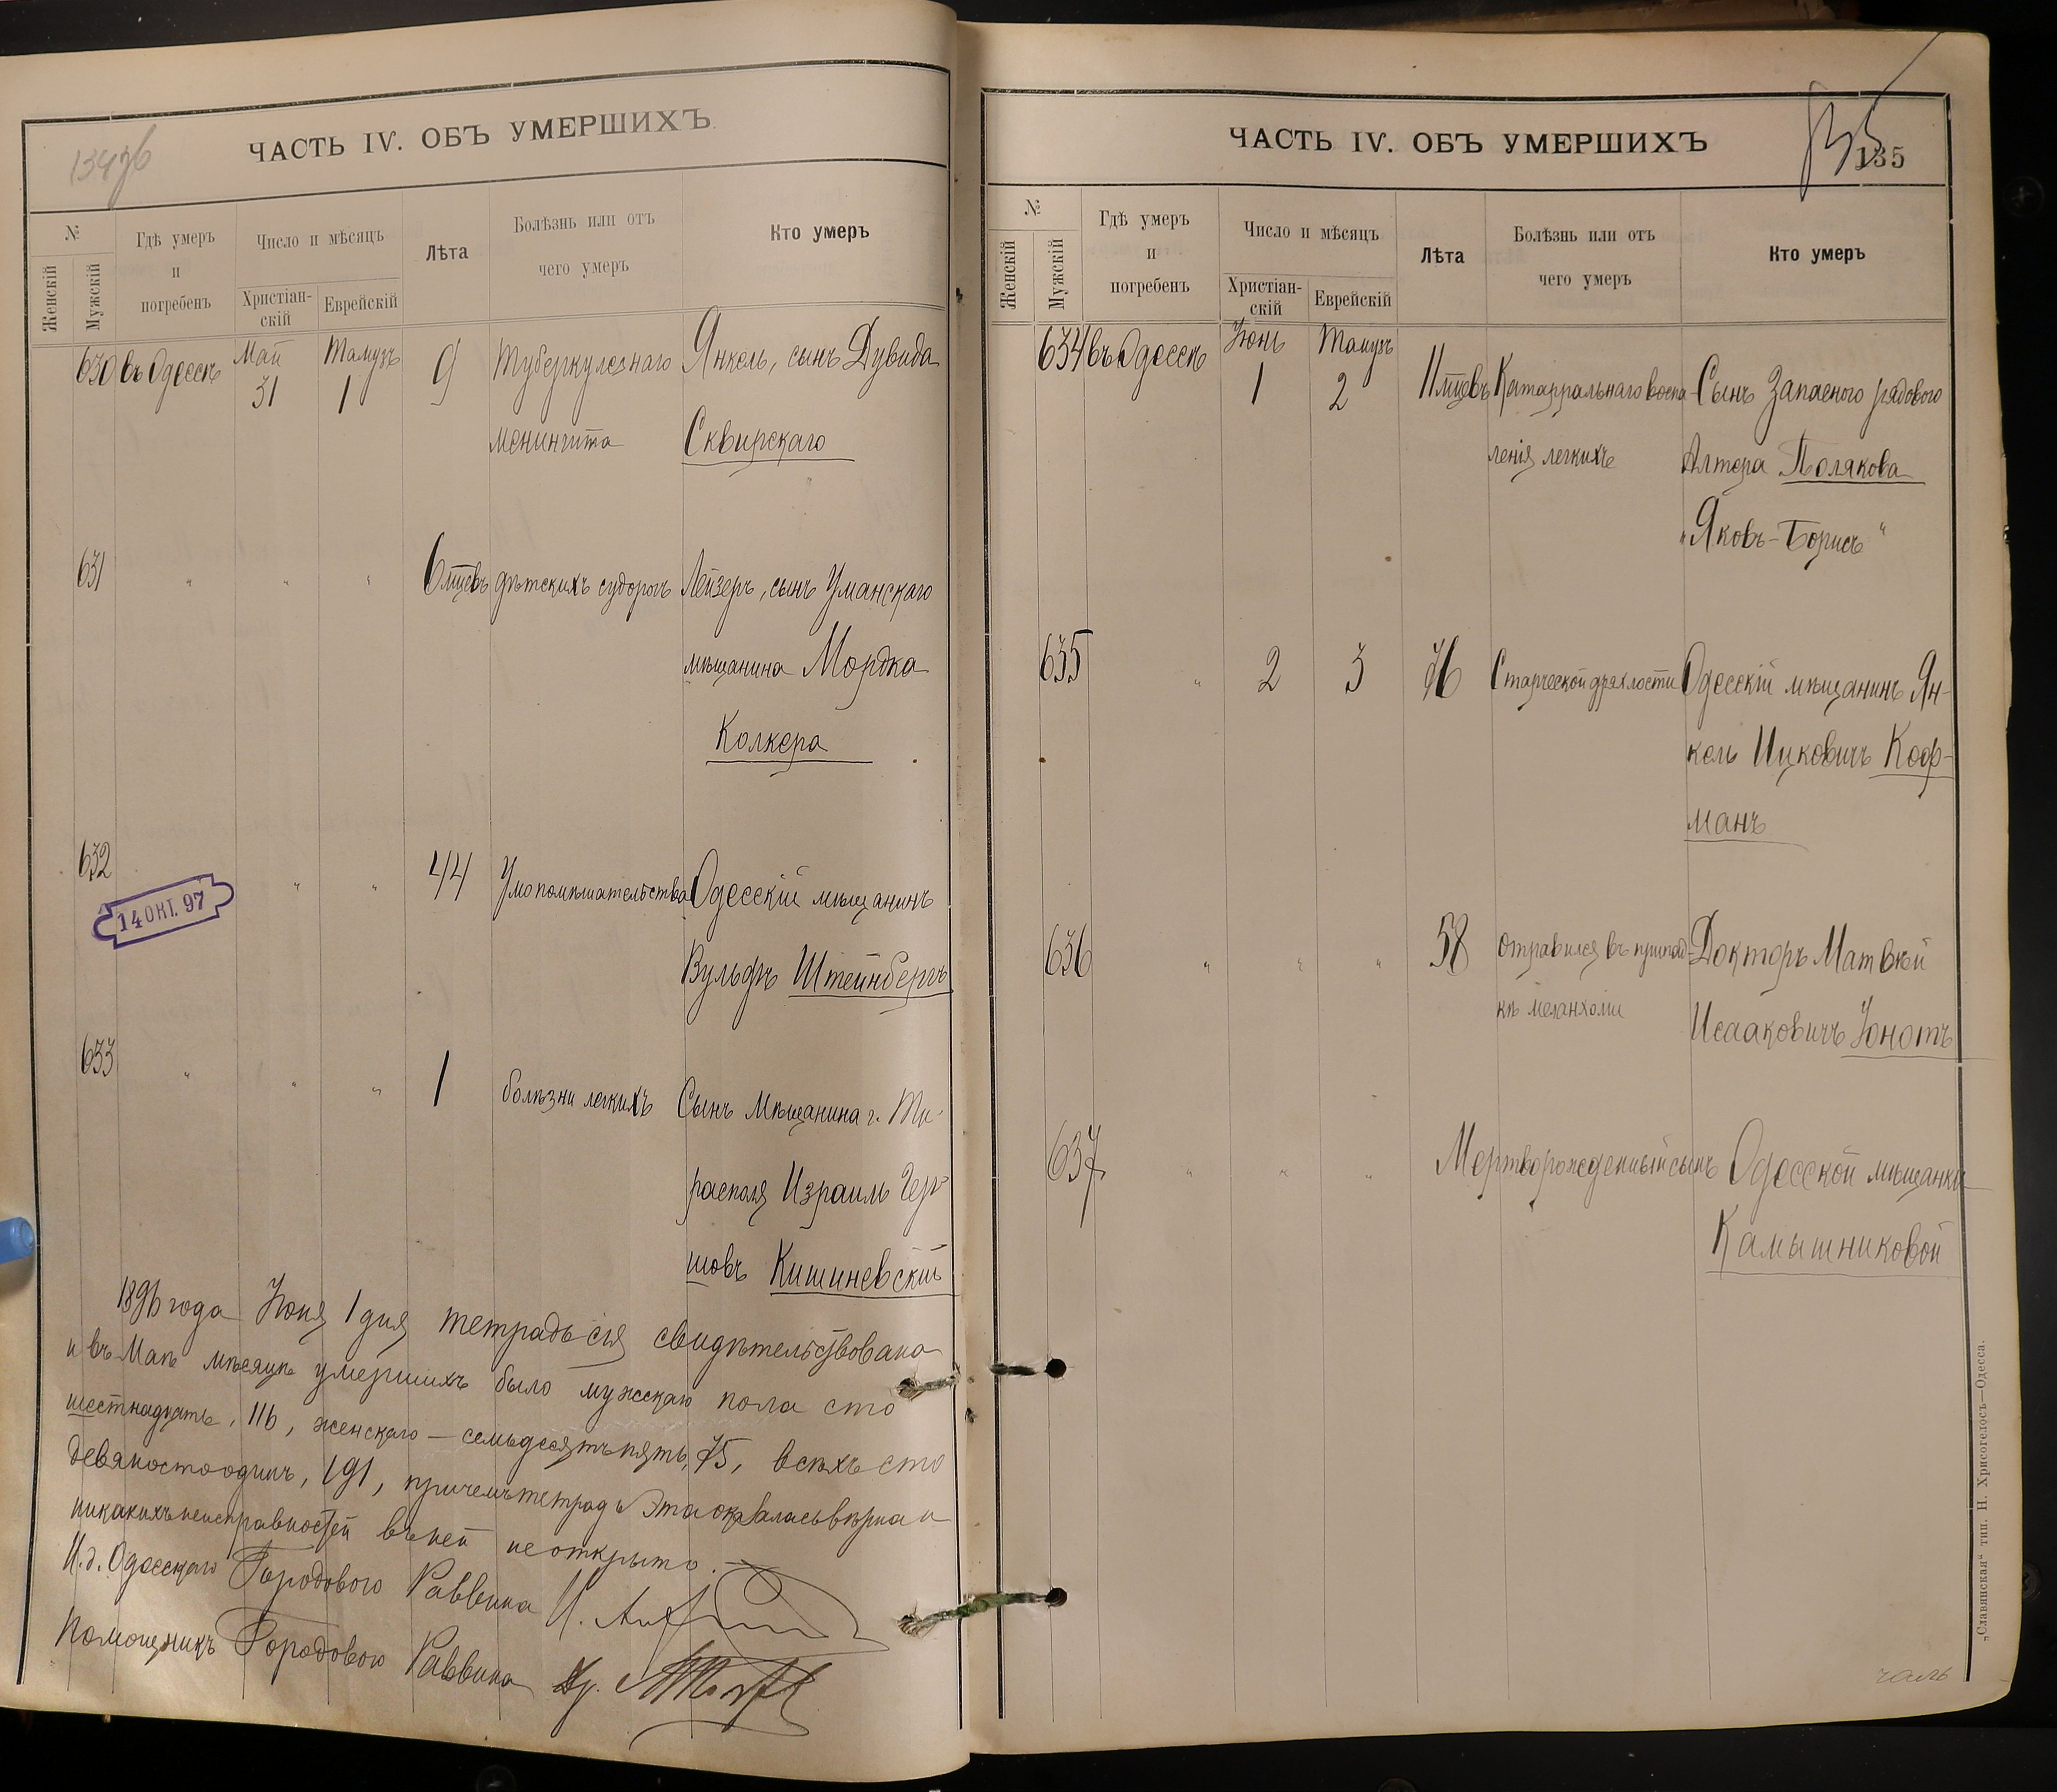 134об
ЧАСТЬ IV. ОБЪ УМЕРШИХЪ
№
Женскій
Мужскій
Гдѣ умеръ
и
погребенъ
Число и мѣсяцъ
Христіан-
скій
Еврейскій
Лѣта
Болѣзнь или отъ
чего умеръ
Кто умеръ
630 въ Одессѣ Май 31 Тамузъ 1 9 Туберкулезнаго Янкель, сынъ Дувида
менингита Сквирскаго
631 " " " 6 мцевъ дѣтскихъ судорогъ Лейзеръ, сынъ Уманскаго
мѣщанина Мордка
Колкера
632 " " 44 Умопомѣшательства Одесскій мѣщанинъ
14 ОКТ. 97
Вульфъ Штейнбергъ
633 " " " 1 болѣзни легкихъ Сынъ Мѣщанина г. Ти-
располя Израиль Гер-
шовъ Кишиневскій
1896 года Іюня 1 дня тетрадь сія свидѣтельствована
и въ Маѣ мѣсяцѣ умершихъ было мужскаго пола сто
шестнадцать, 116, женскаго — семьдесятъ пять, 75, всѣхъ сто
девяносто одинъ, 191, причемъ тетрадь эта оказалась вѣрна и
никакихъ неисправностей въ ней не открыто.
И. д. Одесскаго Городового Раввина
Помощникъ Городового Раввина
ЧАСТЬ IV. ОБЪ УМЕРШИХЪ
135
№
Женскій
Мужскій
Гдѣ умеръ
и
погребенъ
Число и мѣсяцъ
Христіан-
скій
Еврейскій
Лѣта
Болѣзнь или отъ
чего умеръ
Кто умеръ
634 въ Одессѣ Іюнь 1 Тамузъ 2 11 мцевъ Катарральнаго воспа- Сынъ Запасного рядового
ленія легкихъ Алтера Полякова
"Яковъ-Борисъ"
635 " 2 3 76 Старческой дряхлости Одесскій мѣщанинъ Ян-
кель Ицковичъ Коф-
манъ
636 " " " 58 отравился въ припад- Докторъ Матвѣй
кѣ меланхоліи Исааковичъ Юнотъ
637 " " " Мертворожденный сынъ Одесской мѣщанки
Камышниковой
„Славянская“ тип. Н. Хрисогелосъ—Одесса.